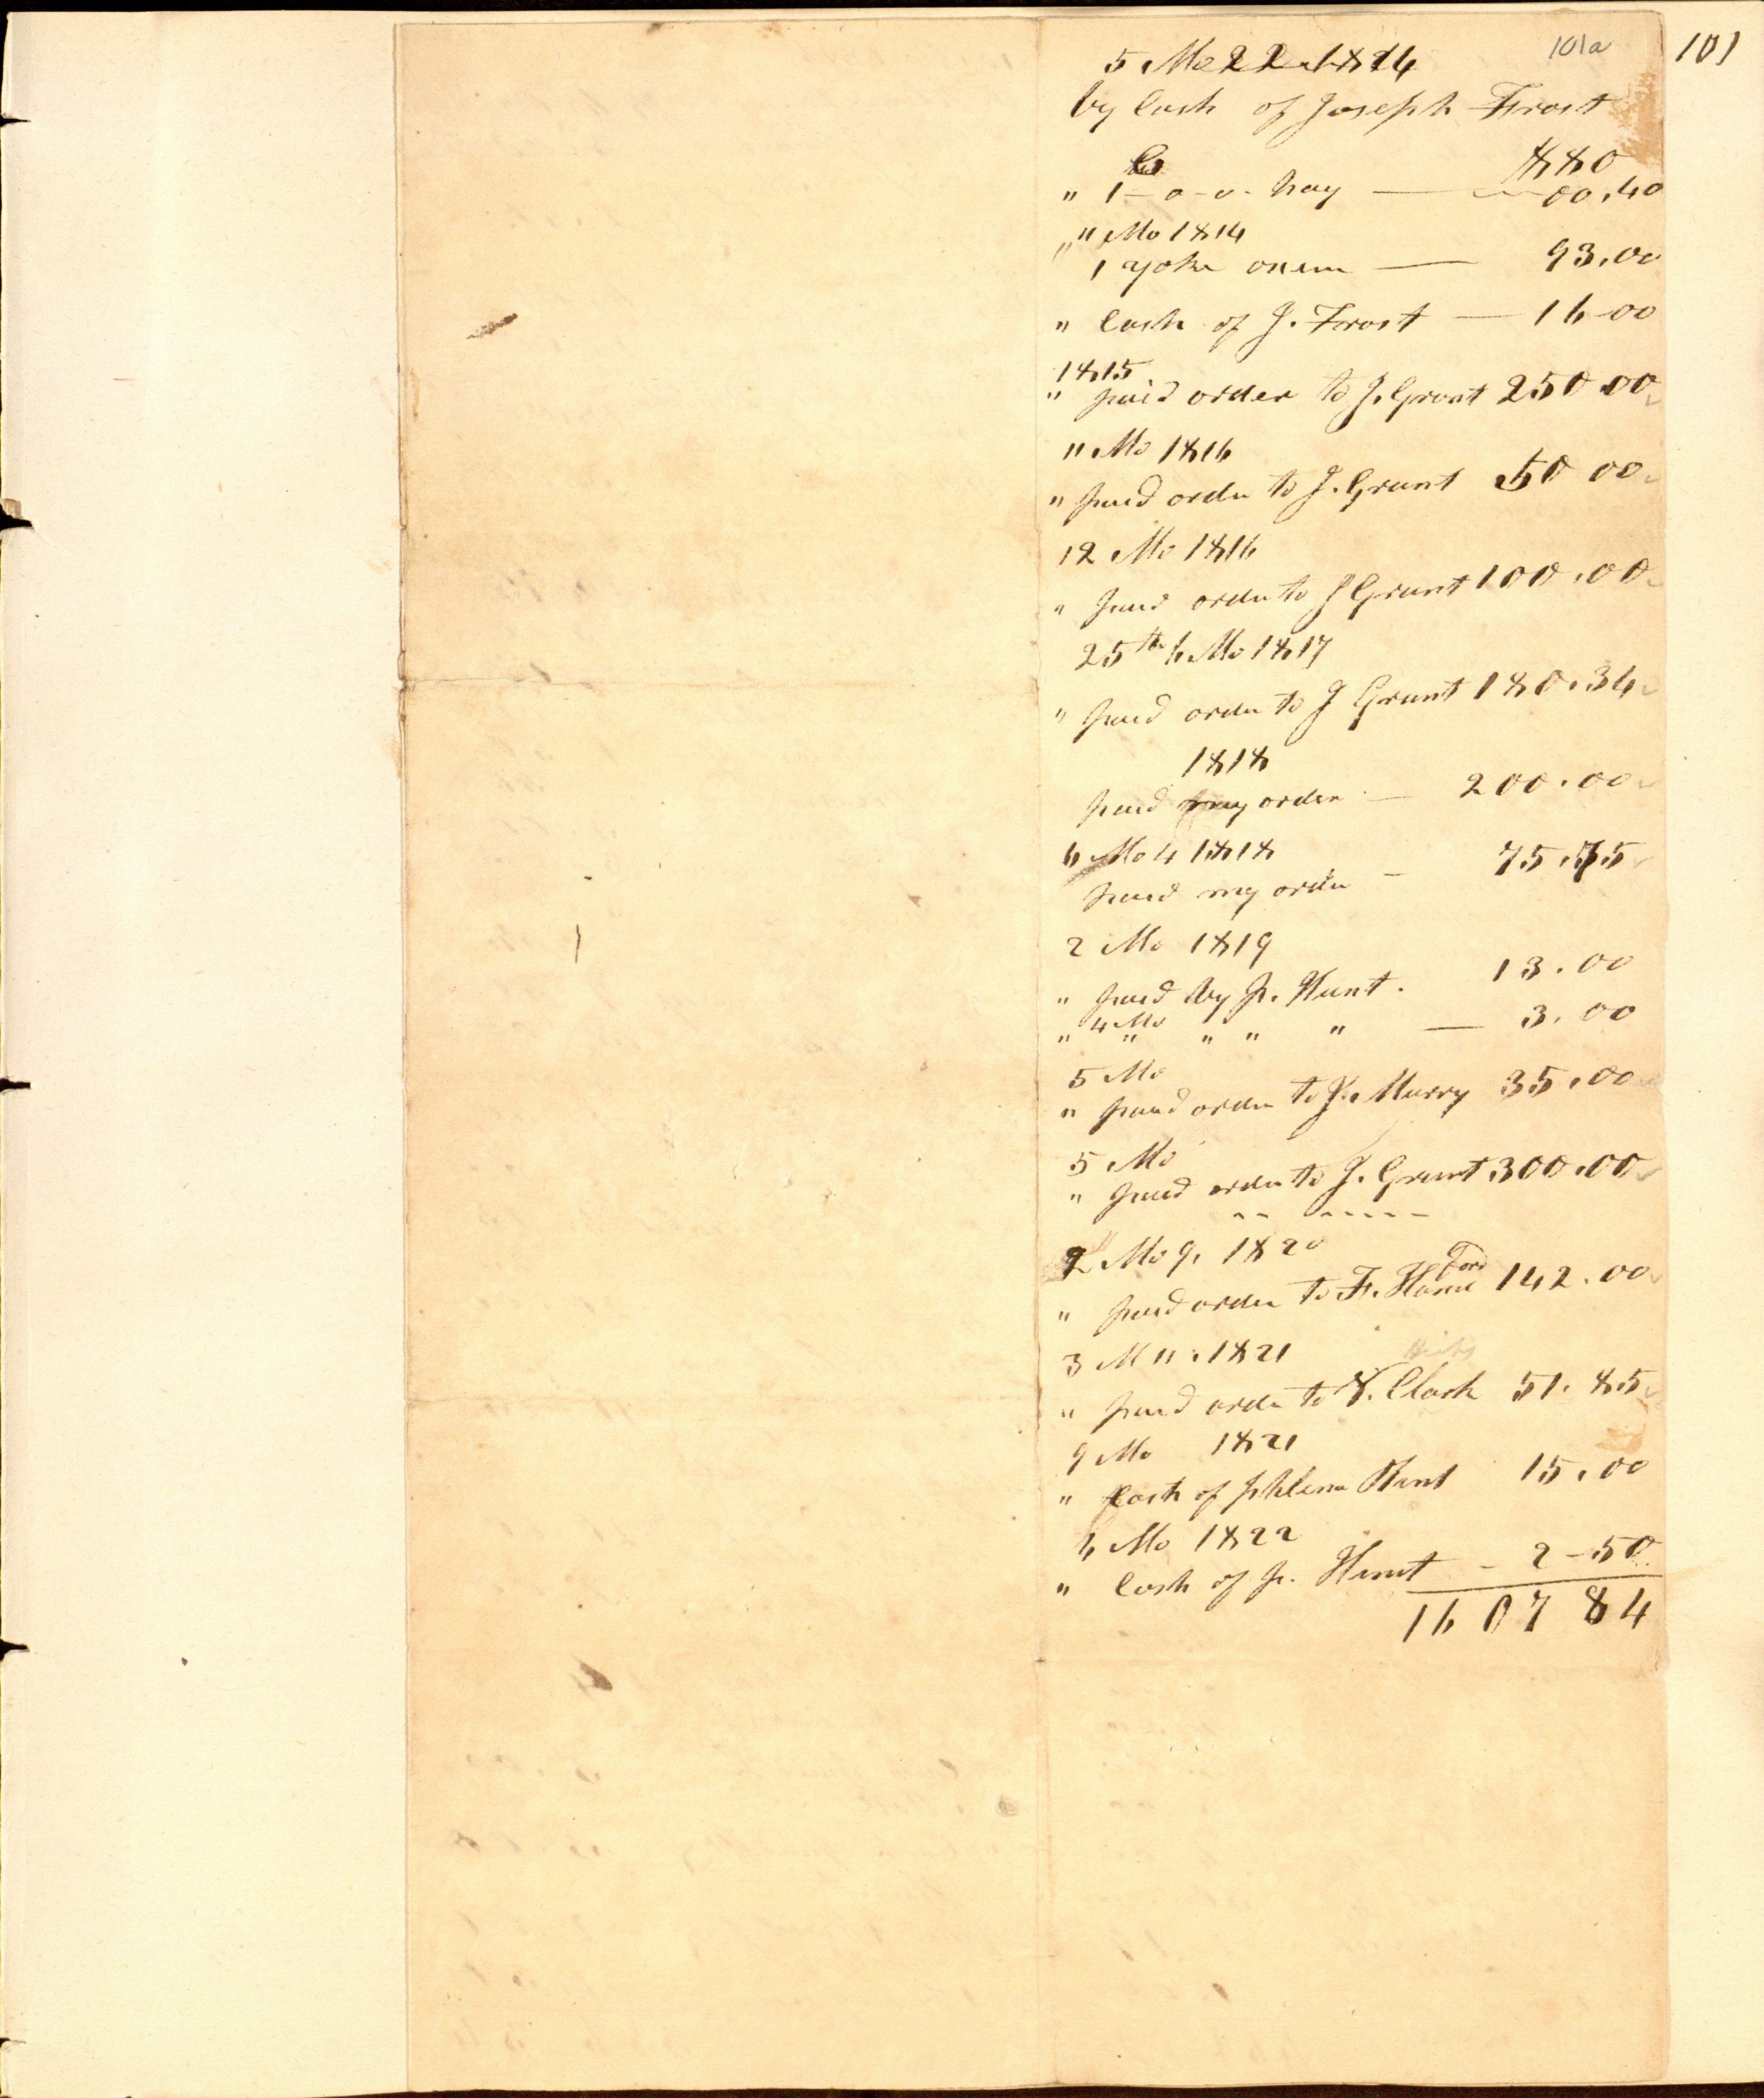 101a
101
5 Mo 22 1814
by Cash of Joseph Frost
$80
" 1-0-0- hay — 00.40
11 Mo 1814
" 1 yoke oxen — 93.00
" Cash of J. Frost — 16-00
1815
" paid order to J. Grant 250 00
11 Mo 1816
" paid order to J. Grant 50 00
12 Mo 1816
" paid order to J Grant 100.00
25th 6 Mo 1817
" paid order to J Grant 180.34
1818
paid my order — 200.00
6 Mo 4 1818
paid my order — 75.75
2 Mo 1819
" paid by p. Hunt. 13.00
" 4 Mo " " " " — 3.00
5 Mo
" paid order to J. Murry 35.00
5 Mo
" paid order to J. Grant 300.00
2 Mo 9. 1820
" paid order to F. 142.00
3 M 11. 1821
" paid order to Clark 51.85
9 Mo 1821
" Cash of 15.00
6 Mo 1822
" Cash of p. Hunt - 2-50
1607 84